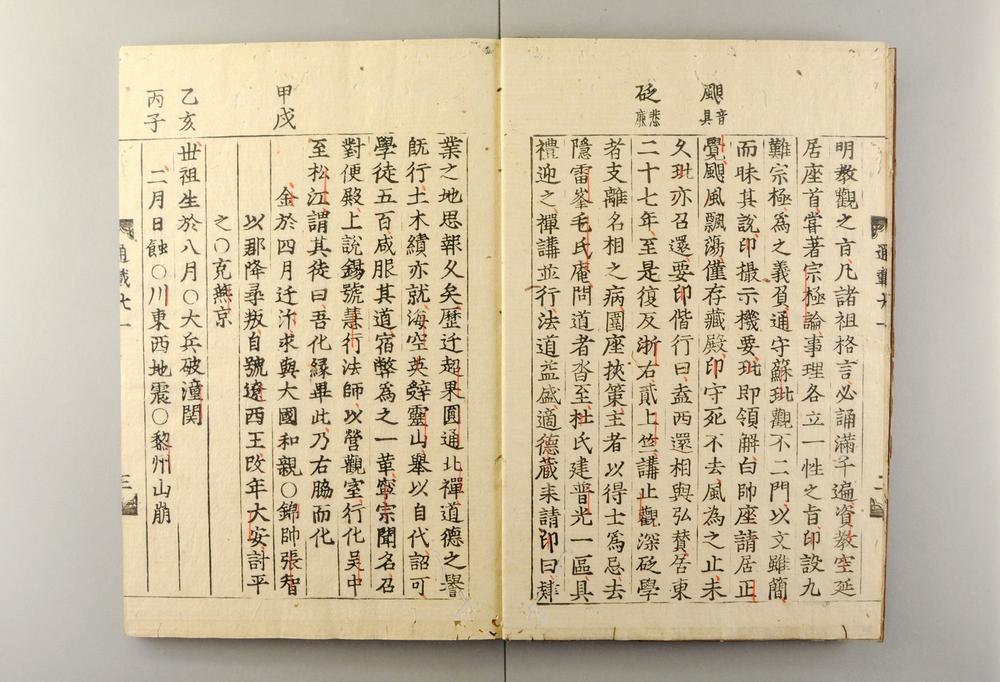 颶音具
砭悲廉
明教觀之旨凡諸祖格言必誦滿千遍資教空延
居座首甞著宗極論事理各立一性之旨印設九
難宗極爲之義負通守蘇玭觀不二門以文雖簡
而昧其説印撮示機要玭即領解白帥座請居正
覺颶風飄蕩僅存藏殿印守死不去風為之止未
久玭亦召還要印偕行曰盍西還相與弘賛居東
二十七年至是復反浙右貳上竺講止觀深砭學
者支離名相之病圍座挾策主者以得士爲忌去
隱雷峯毛氏庵問道者沓至杜氏建普光一區具
禮迎之禪講並行法道益盛適德藏来請印曰肄
通載廿一
二
業之地思報久矣歷迁超果圓通北禪道德之譽
既行土木績亦就海空英辤靈山舉以自代詔可
學徒五百咸服其道宿弊為之一革寧宗聞名召
對便殿上說錫號慧行法師以營觀室行化吴中
至松江謂其徒曰吾化緣畢此乃右脇而化
甲戌
金於四月迁汴求與大國和親○錦帥張智
以那降尋叛自號遼西王改年大安討平
之○克燕京
乙亥
世祖生於八月○大兵破潼関
丙子
二月日蝕○川東西地震○黎州山崩
通載廿一
三